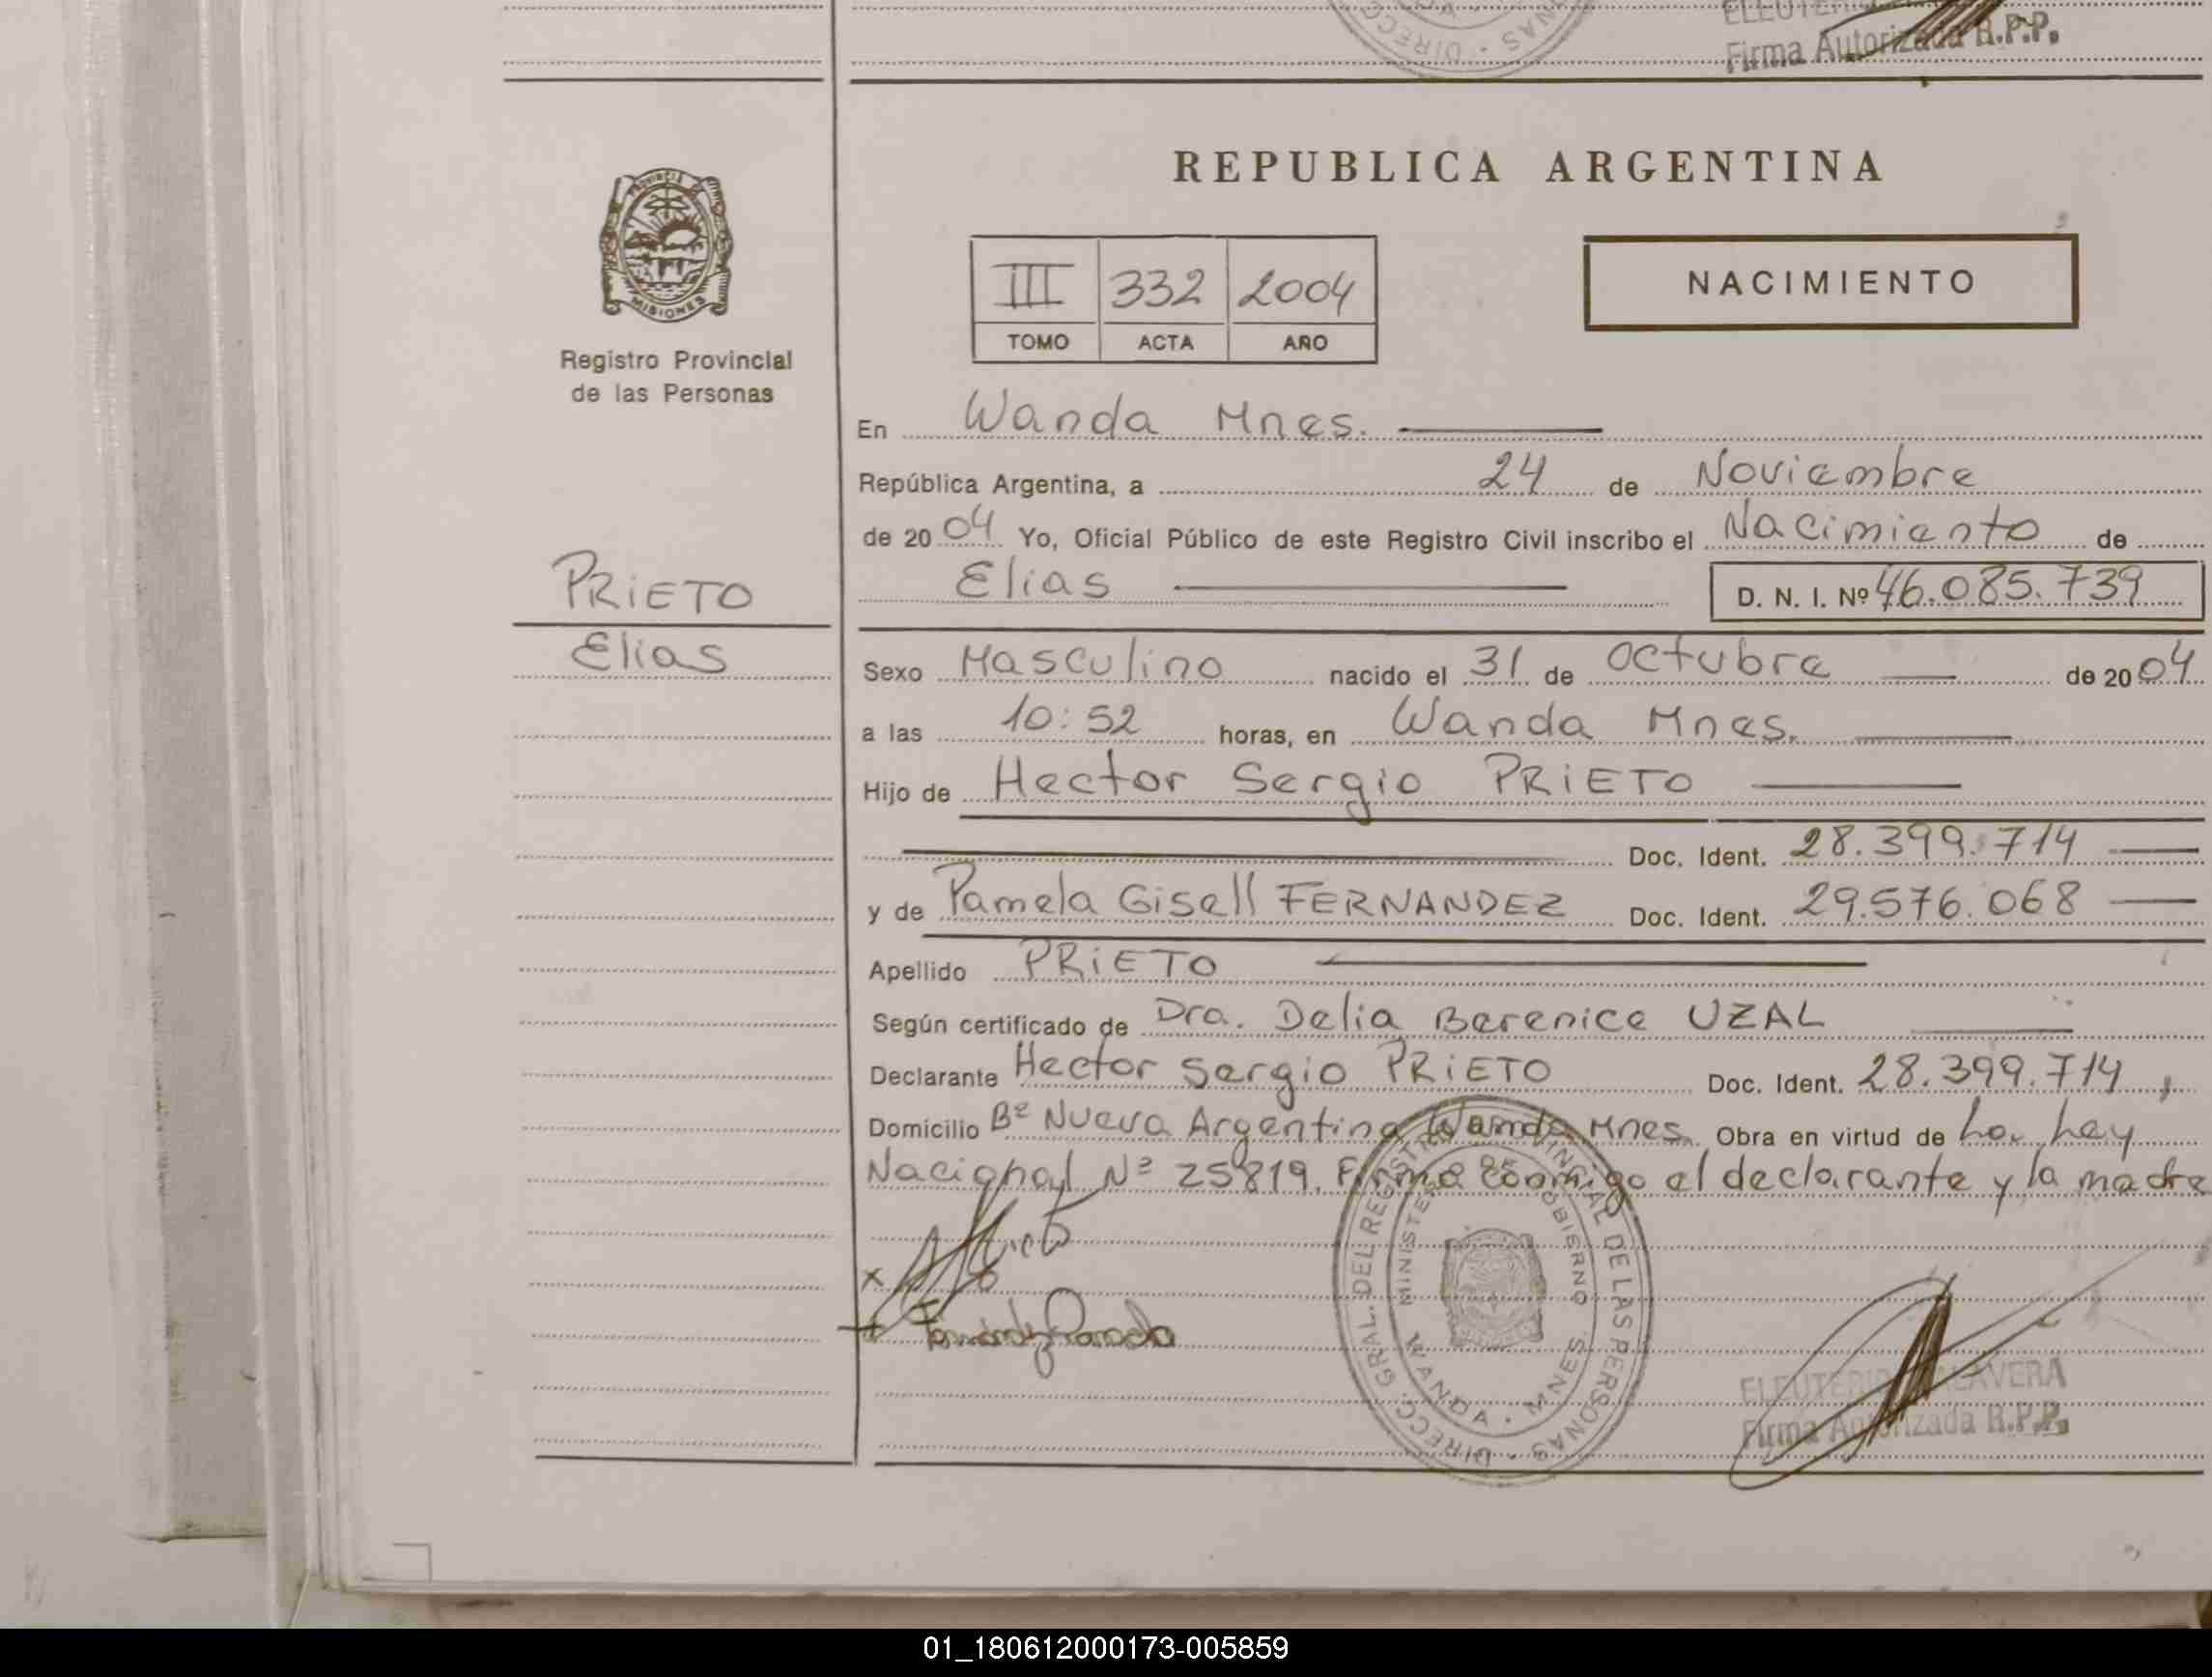 Firma Autorizada R.P.P.
REPUBLICA ARGENTINA
PROVINCIA
MISIONES
Registro Provincial
de las Personas
III 332 2004
TOMO ACTA AÑO
NACIMIENTO
En Wanda Mnes.
República Argentina, a 24 de Noviembre
de 20 04 Yo, Oficial Público de este Registro Civil inscribo el Nacimiento de
PRiETO
Elias
Elias D. N. I. Nº 46.085.739
Sexo Masculino nacido el 31 de octubre de 20 04
a las 10:52 horas, en Wanda Mnes.
Hijo de Hector Sergio PRiETO
Doc. Ident. 28.399.714
y de Pamela Gisell FERNANDEZ Doc. Ident. 29.576.068
Apellido PRiETO
Según certificado de Dra. Delia Berenice UZAL
Declarante Hector Sergio PRiETO Doc. Ident. 28.399.714,
Domicilio Bº Nueva Argentina Wanda Mnes. Obra en virtud de La Ley
Nacional Nº 25819. Firma conmigo el declarante y la madre
DIRECC. GRAL. DEL REGISTRO PROVINCIAL DE LAS PERSONAS
MINISTERIO DE GOBIERNO
WANDA - MNES
Firma Autorizada R.P.P.
01_180612000173-005859